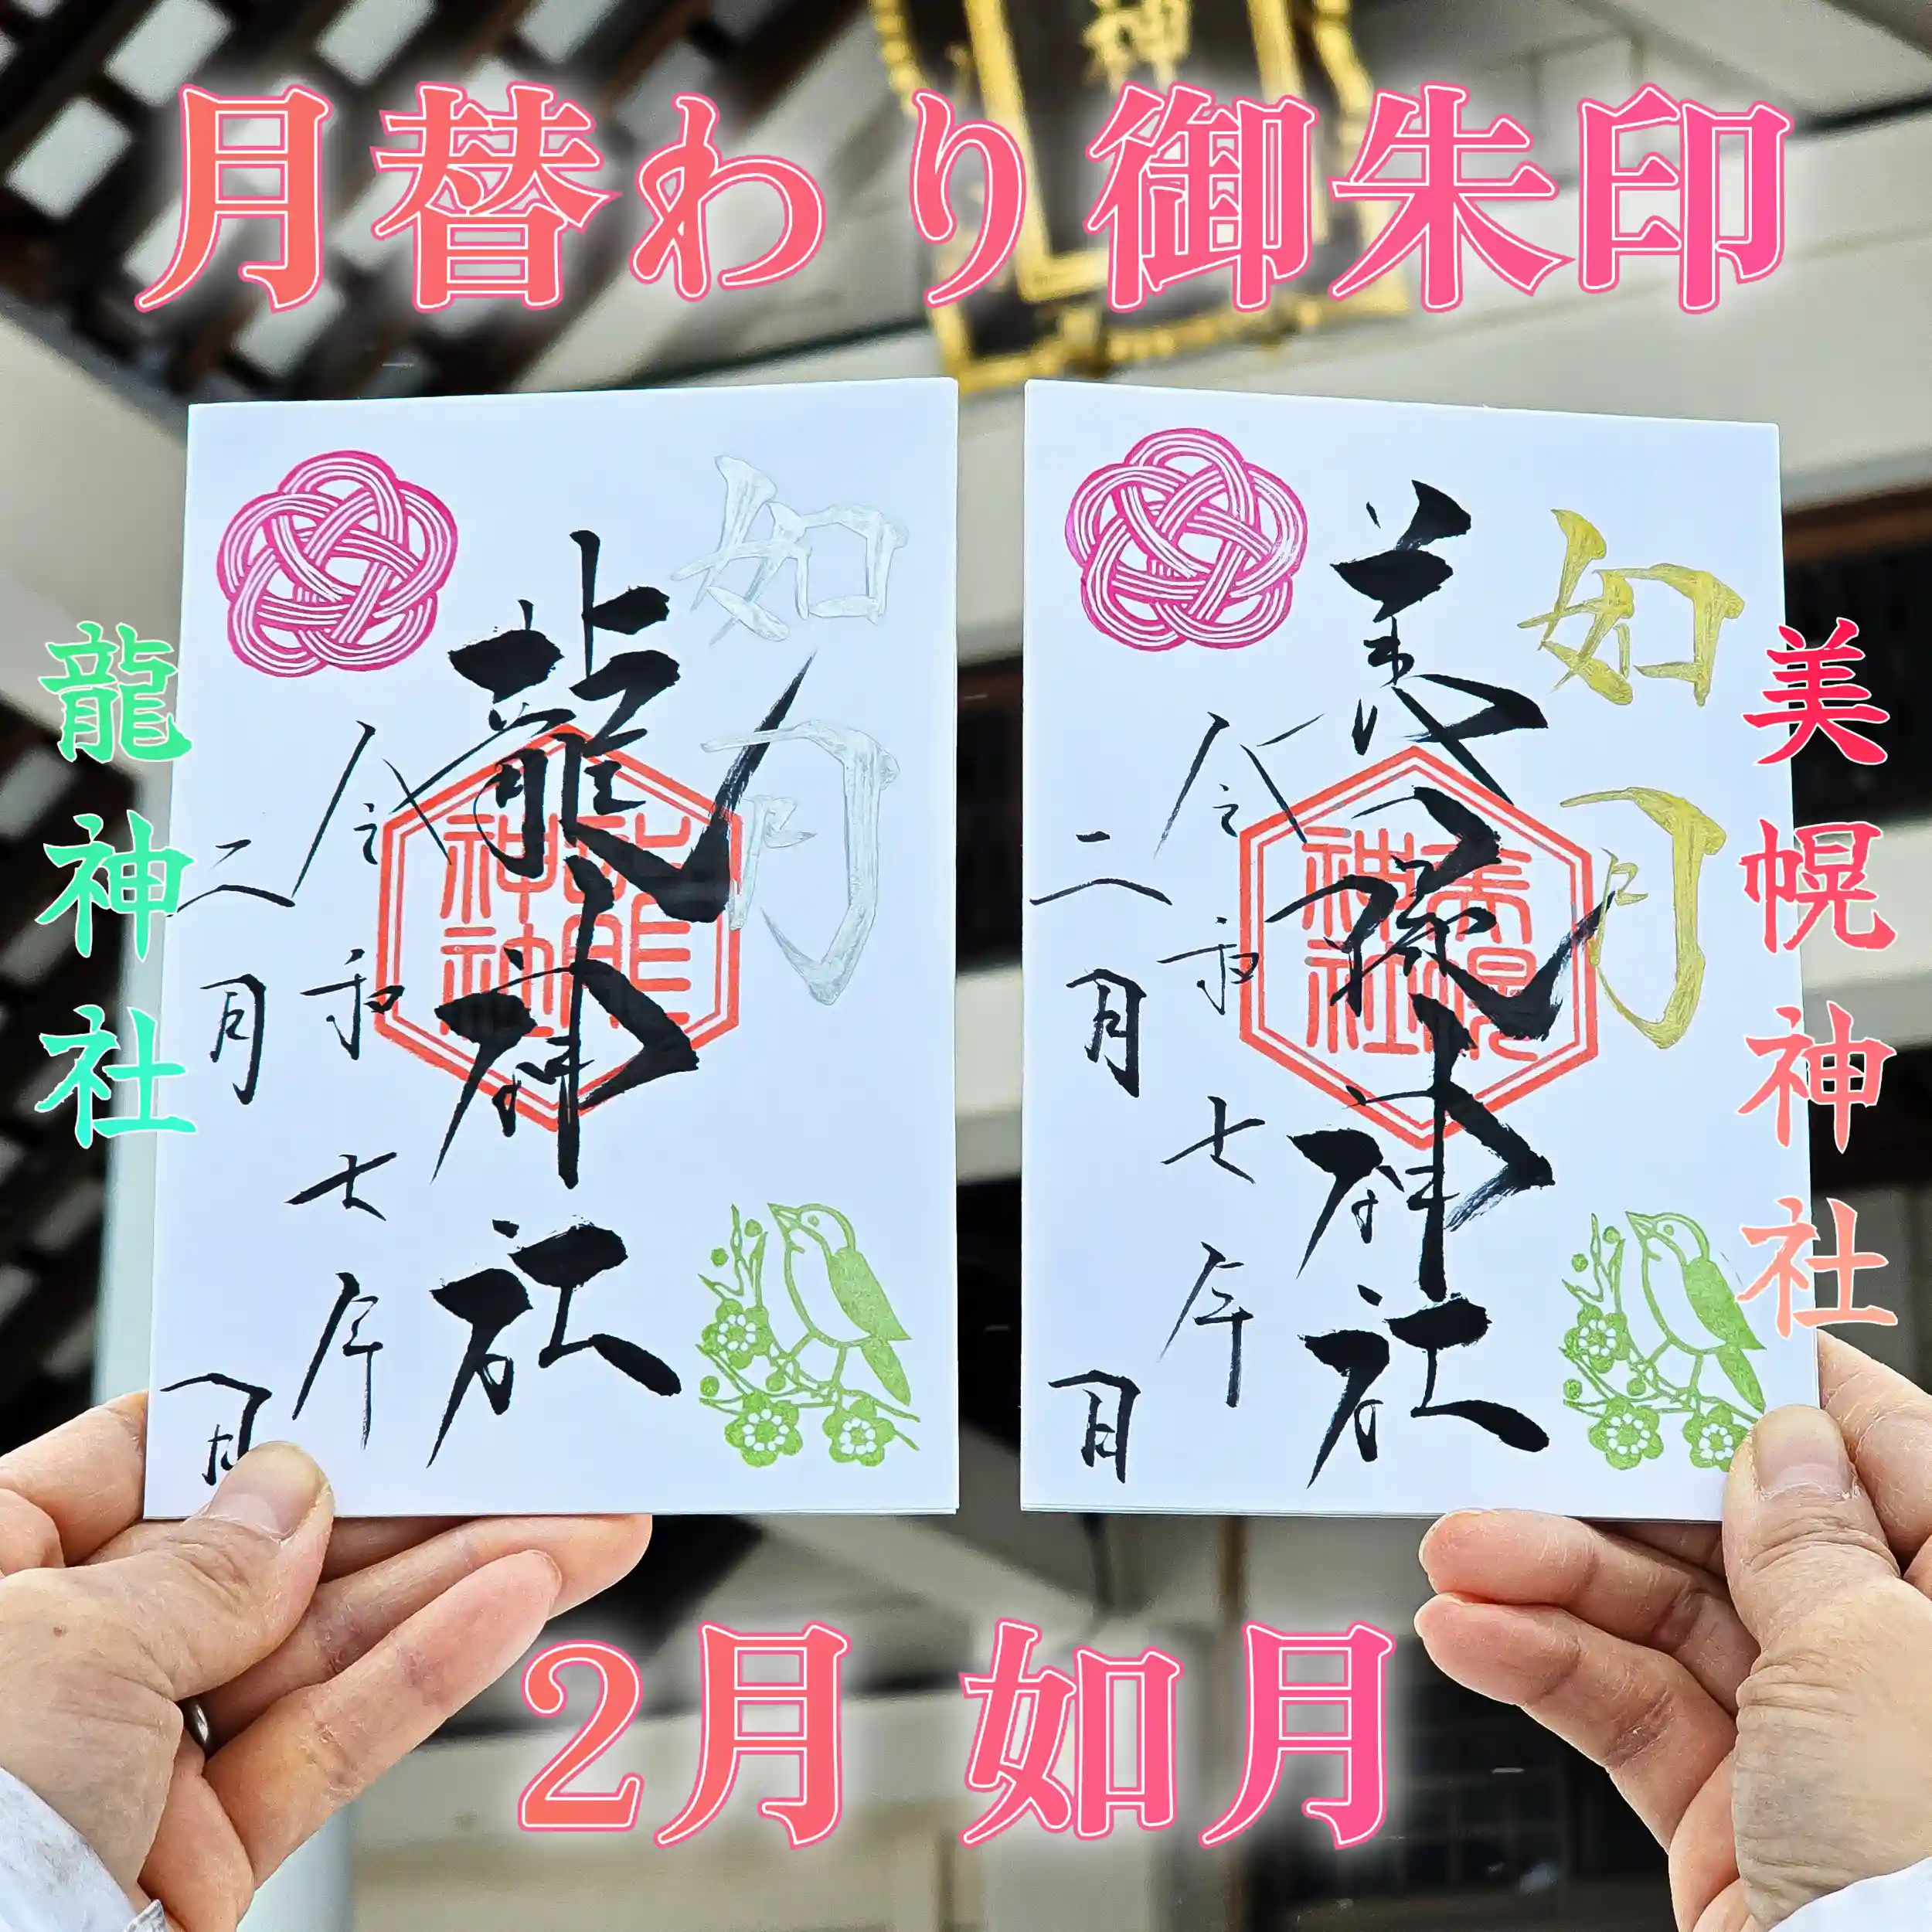 神
月替わり御朱印
龍神社
如月
龍神社
神社
令和七年
二月
日
如月
美幌神社
美幌神社
神社
令和七年
二月
日
美幌神社
2月 如月